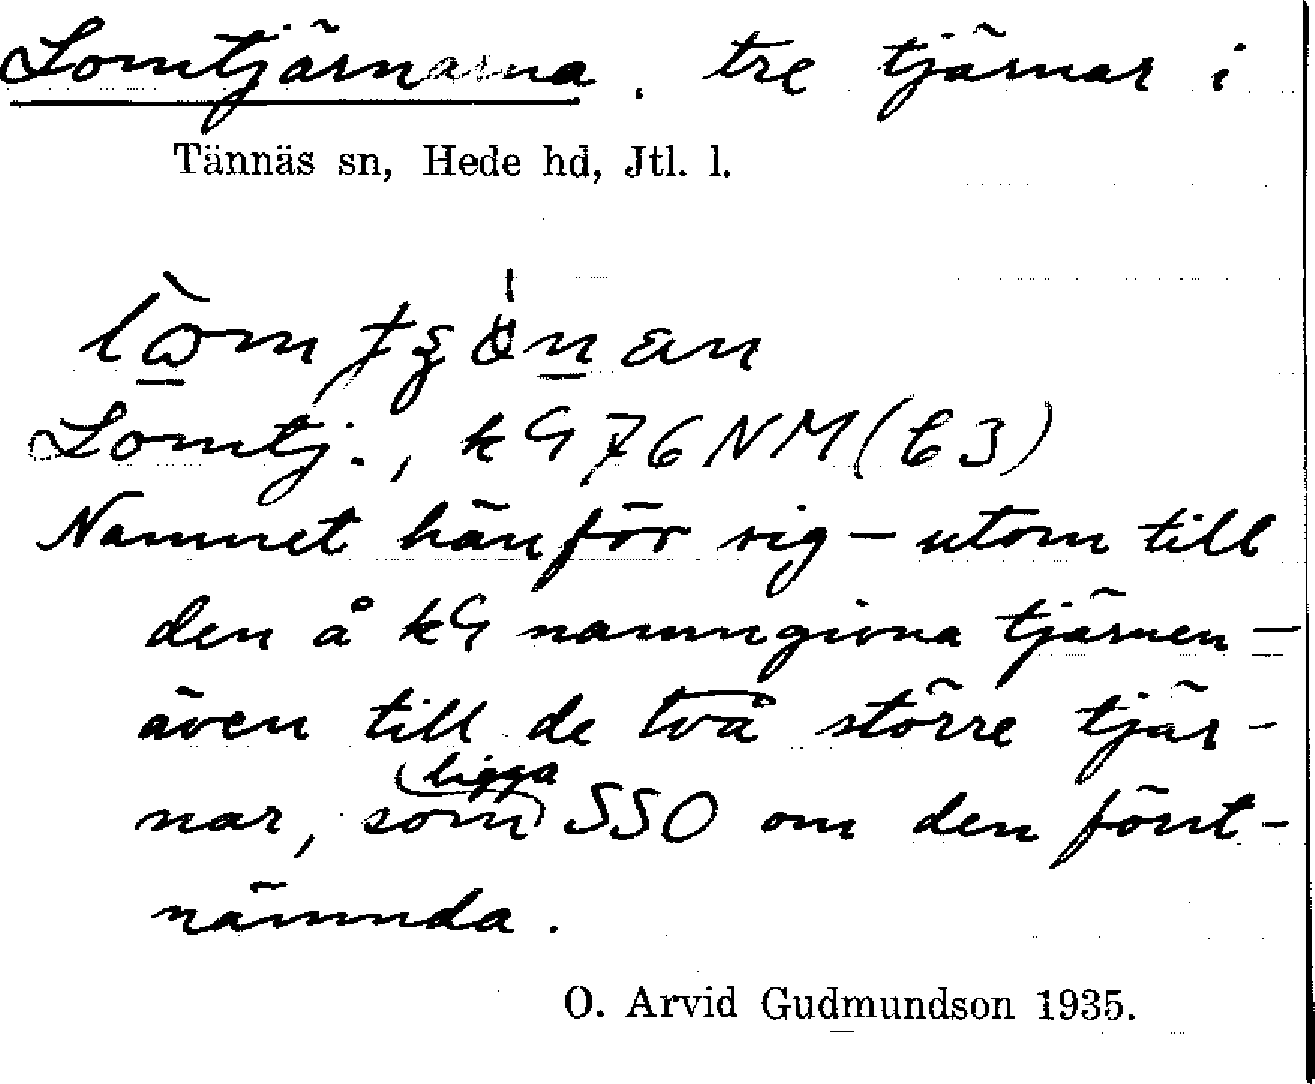 Lomtjärnarna, tre tjärnar i
Tännäs sn, Hede hd, Jtl. l.
Lomtj., kG 76 NM (63)
Namnet hänför sig – utom till
den å kG namngivna tjärnen –
även till de två större tjär-
nar, som ligga SSO om den först-
nämnda.
O. Arvid Gudmundson 1935.